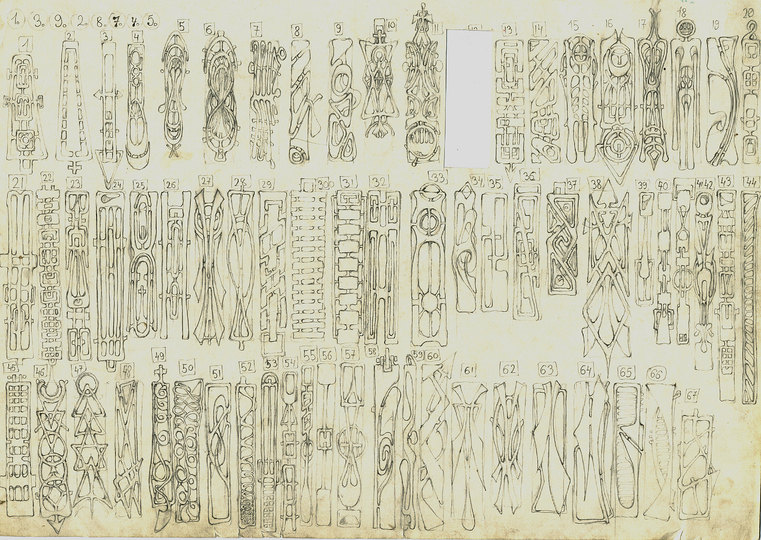 1. 3. 9. 2. 8. 7. 4. 5.
1 2 3 4 5 6 7 8 9 10 11 13 14 15 16 17 18 19 20
21 22 23 24 25 26 27 28 29 30 31 32 33 34 35 36 37 38 39 40 41 42 43 44
45 46 47 48 49 50 51 52 53 54 55 56 57 58 59 60 61 62 63 64 65 66 67